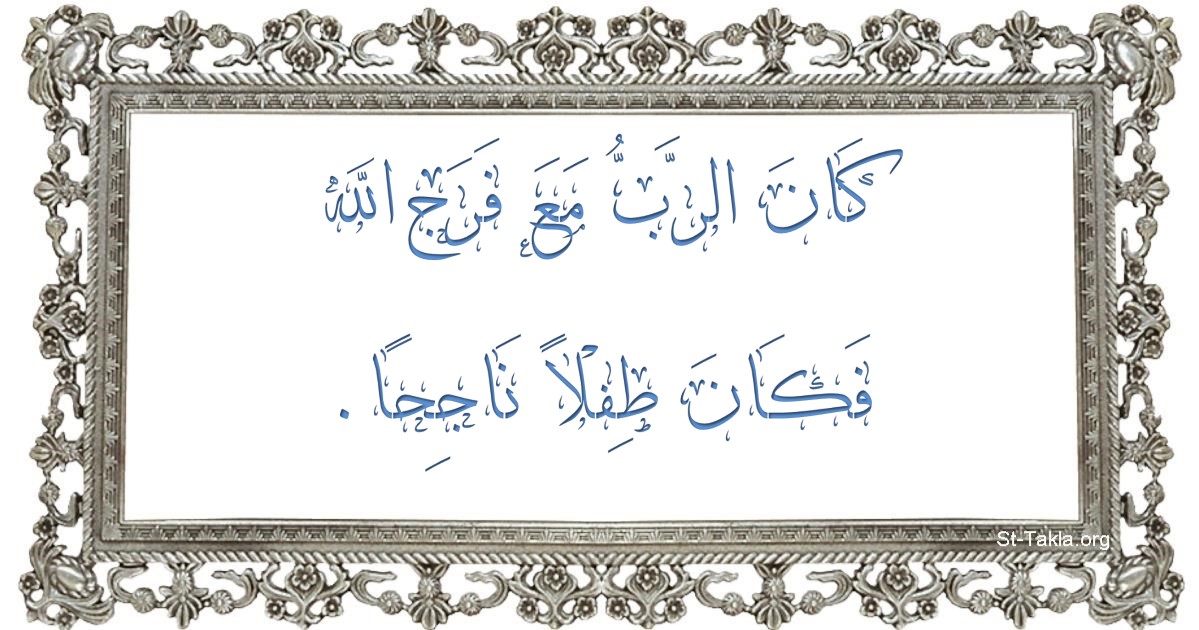 كَانَ الرَّبُّ مَعَ فَرَجِ اللَّهِ
فَكَانَ طِفْلاً نَاجِحًا.
St-Takla.org